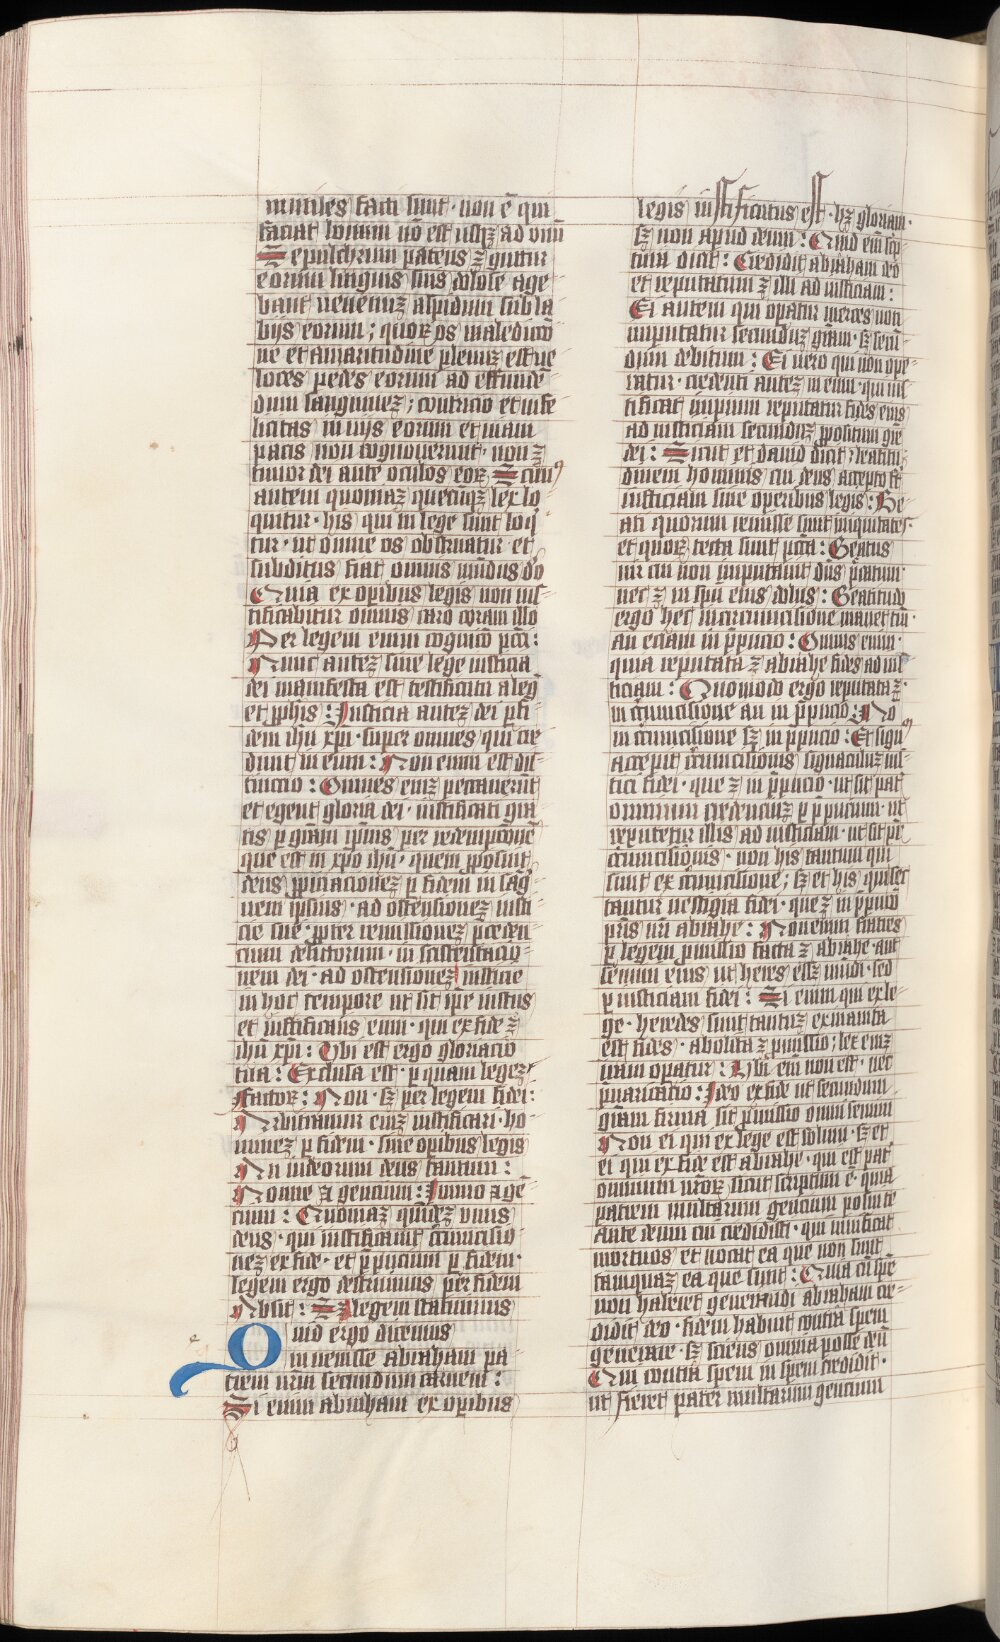 inutiles facti sunt · non ē qui
faciat bonum nō est usqꝫ ad vnū
Sepulchrum patens ē guttur
eorum linguis suis dolose age
bant venenūꝫ aspidum sub la
bijs eorum ; quoꝝ os maledicciō
ne et amaritudine plenuꝫ est ve
loces pedes eorum ad effunden
dum sanguineꝫ ; contricio et infe
licitas in vijs eorum et viam
pacis non cognouerunt · non ē
timor dei ante oculos eoꝝ Scim9
autem quoniaꝫ quecūqꝫ lex lo
quitur · his qui in lege sunt loqi
tur · ut omne os obstruatur et
subditus fiat omnis mūdus deo
Quia ex oꝑibus legis non ius
tificabitur omnis caro coram illo
Per legem enim cognicō pcci :
Nunc auteꝫ sine lege iusticia
dei manifesta est testificata a leg
et ꝓphis : Justicia autem dei ꝑ fi
dem ihū xpi · super omnes qui cre
dunt in eum : Non enim est dis
tinctio : Omnes enīꝫ peccauerūt
et egent gloria dei · iustificati gra
tis ꝑ grām ipsius per redempcōne
que est in xpo ihū · quem ꝓposuit
deus ꝓpiciacioneꝫ ꝑ fidem in sāg
uem ipsius · ad ostensioneꝫ iusti
cie sue · ꝓpter remissioneꝫ p̄ceden
cium delictorum · in sustentacio
nem dei · ad ostensioneꝫ iusticie
in hoc tempore ut sit ipe iustus
et iustificans eum · qui ex fide ē
ihū xpi : Vbi est ergo gloriacio
tua : Exclusa est · ꝑ quam legeꝫ
factoꝝ : Non · sꝫ per legem fidei :
Arbitramur enīꝫ iustificari · ho
mineꝫ ꝑ fidem · sine oꝑibus legis
An iudeorum deus tantum :
Nonne ⁊ gentium : Immo ⁊ gē
tium : Quoniaꝫ quideꝫ vnus
deus · qui iustificauit circūcisio
neꝫ ex fide · et p̄pucium ꝑ fidem ·
legem ergo destruimus per fidem
Absit : Sꝫ legem statuimus
Quid ergo dicemus
inuenisse abraham pa
trem nr̄m secundum carnem :
Si enim abraham ex oꝑibus
legis iustificatus est · hꝫ gloriam ·
sꝫ non apud deum : Quid eī scp
tura dicit : Credidit abraham deo
et reputatum ē illi ad iusticiam :
Ei autem qui opatur merces non
imputatur secunduꝫ grām · sꝫ secū
dum debitum : Ei vero qui non ope
ratur · credenti auteꝫ in eum · qui ius
tificat impium reputatur fides eius
ad iusticiam secunduꝫ ꝓpositum grē
dei : Sicut et dauid dicit · beatitu
dinem hominis cui deus accepto fert
iusticiam sine operibus legis : Be
ati quorum remisse sunt iniquitates
et quoꝝ tecta sunt pccā : Beatus
vir cui non imputauit dūs pccatum
nec ē in spū eius dolus : Beatitudo
ergo hec in circumcisione manet tm̄
an eciam in p̄pucio : Dicimus enim ·
quia reputata ē abrahe fides ad ius
ticiam : Quomodo ergo reputata ē ·
in circumcisione an in p̄pucio : No
in circumcisione sꝫ in p̄pucio : Et signū
accepit circumcisionis signaculuꝫ ius
ticie fidei · que ē in p̄pucio · ut sit pat
omnium credenciuꝫ ꝑ p̄pucium · ut
reputetur illis ad iusticiam · ut sit pr̄
circumcisionis · non his tantum qui
sunt ex circumcisione ; sꝫ et his qui sec
tantur vestigia fidei · que ē in p̄pucio
pr̄is nr̄i abrahe : Non enim
ꝑ legem promissio facta ē abrahe · aut
semini eius ut heres esseꝫ mūdi · sed
ꝑ iusticiam fidei : Si enim qui ex le
ge · heredes sunt tantuꝫ exinanita
est fides · abolita ē promissio ; lex enīꝫ
iram operatur : Vbi enī non est · nec
p̄uaricatio : Ideo ex fide ut secundum
grām firma sit promissio omni semini
Non ei qui ex lege est solum · sꝫ et
ei qui ex fide est abrahe · qui est pat
omnium nr̄oꝝ sicut scriptum ē · quia
patrem multarum gentium posui te
Ante deum cui credidisti · qui viuificat
mortuos et vocat ea que non sunt
tamquaꝫ ea que sunt : Quia cū spē
non haberet generandi abraham cre
didit deo · fidem habuit contra spem
generare · sꝫ sciens omnia posse deū
Qui contra spem in spem credidit ·
ut fieret pater multarum gentium